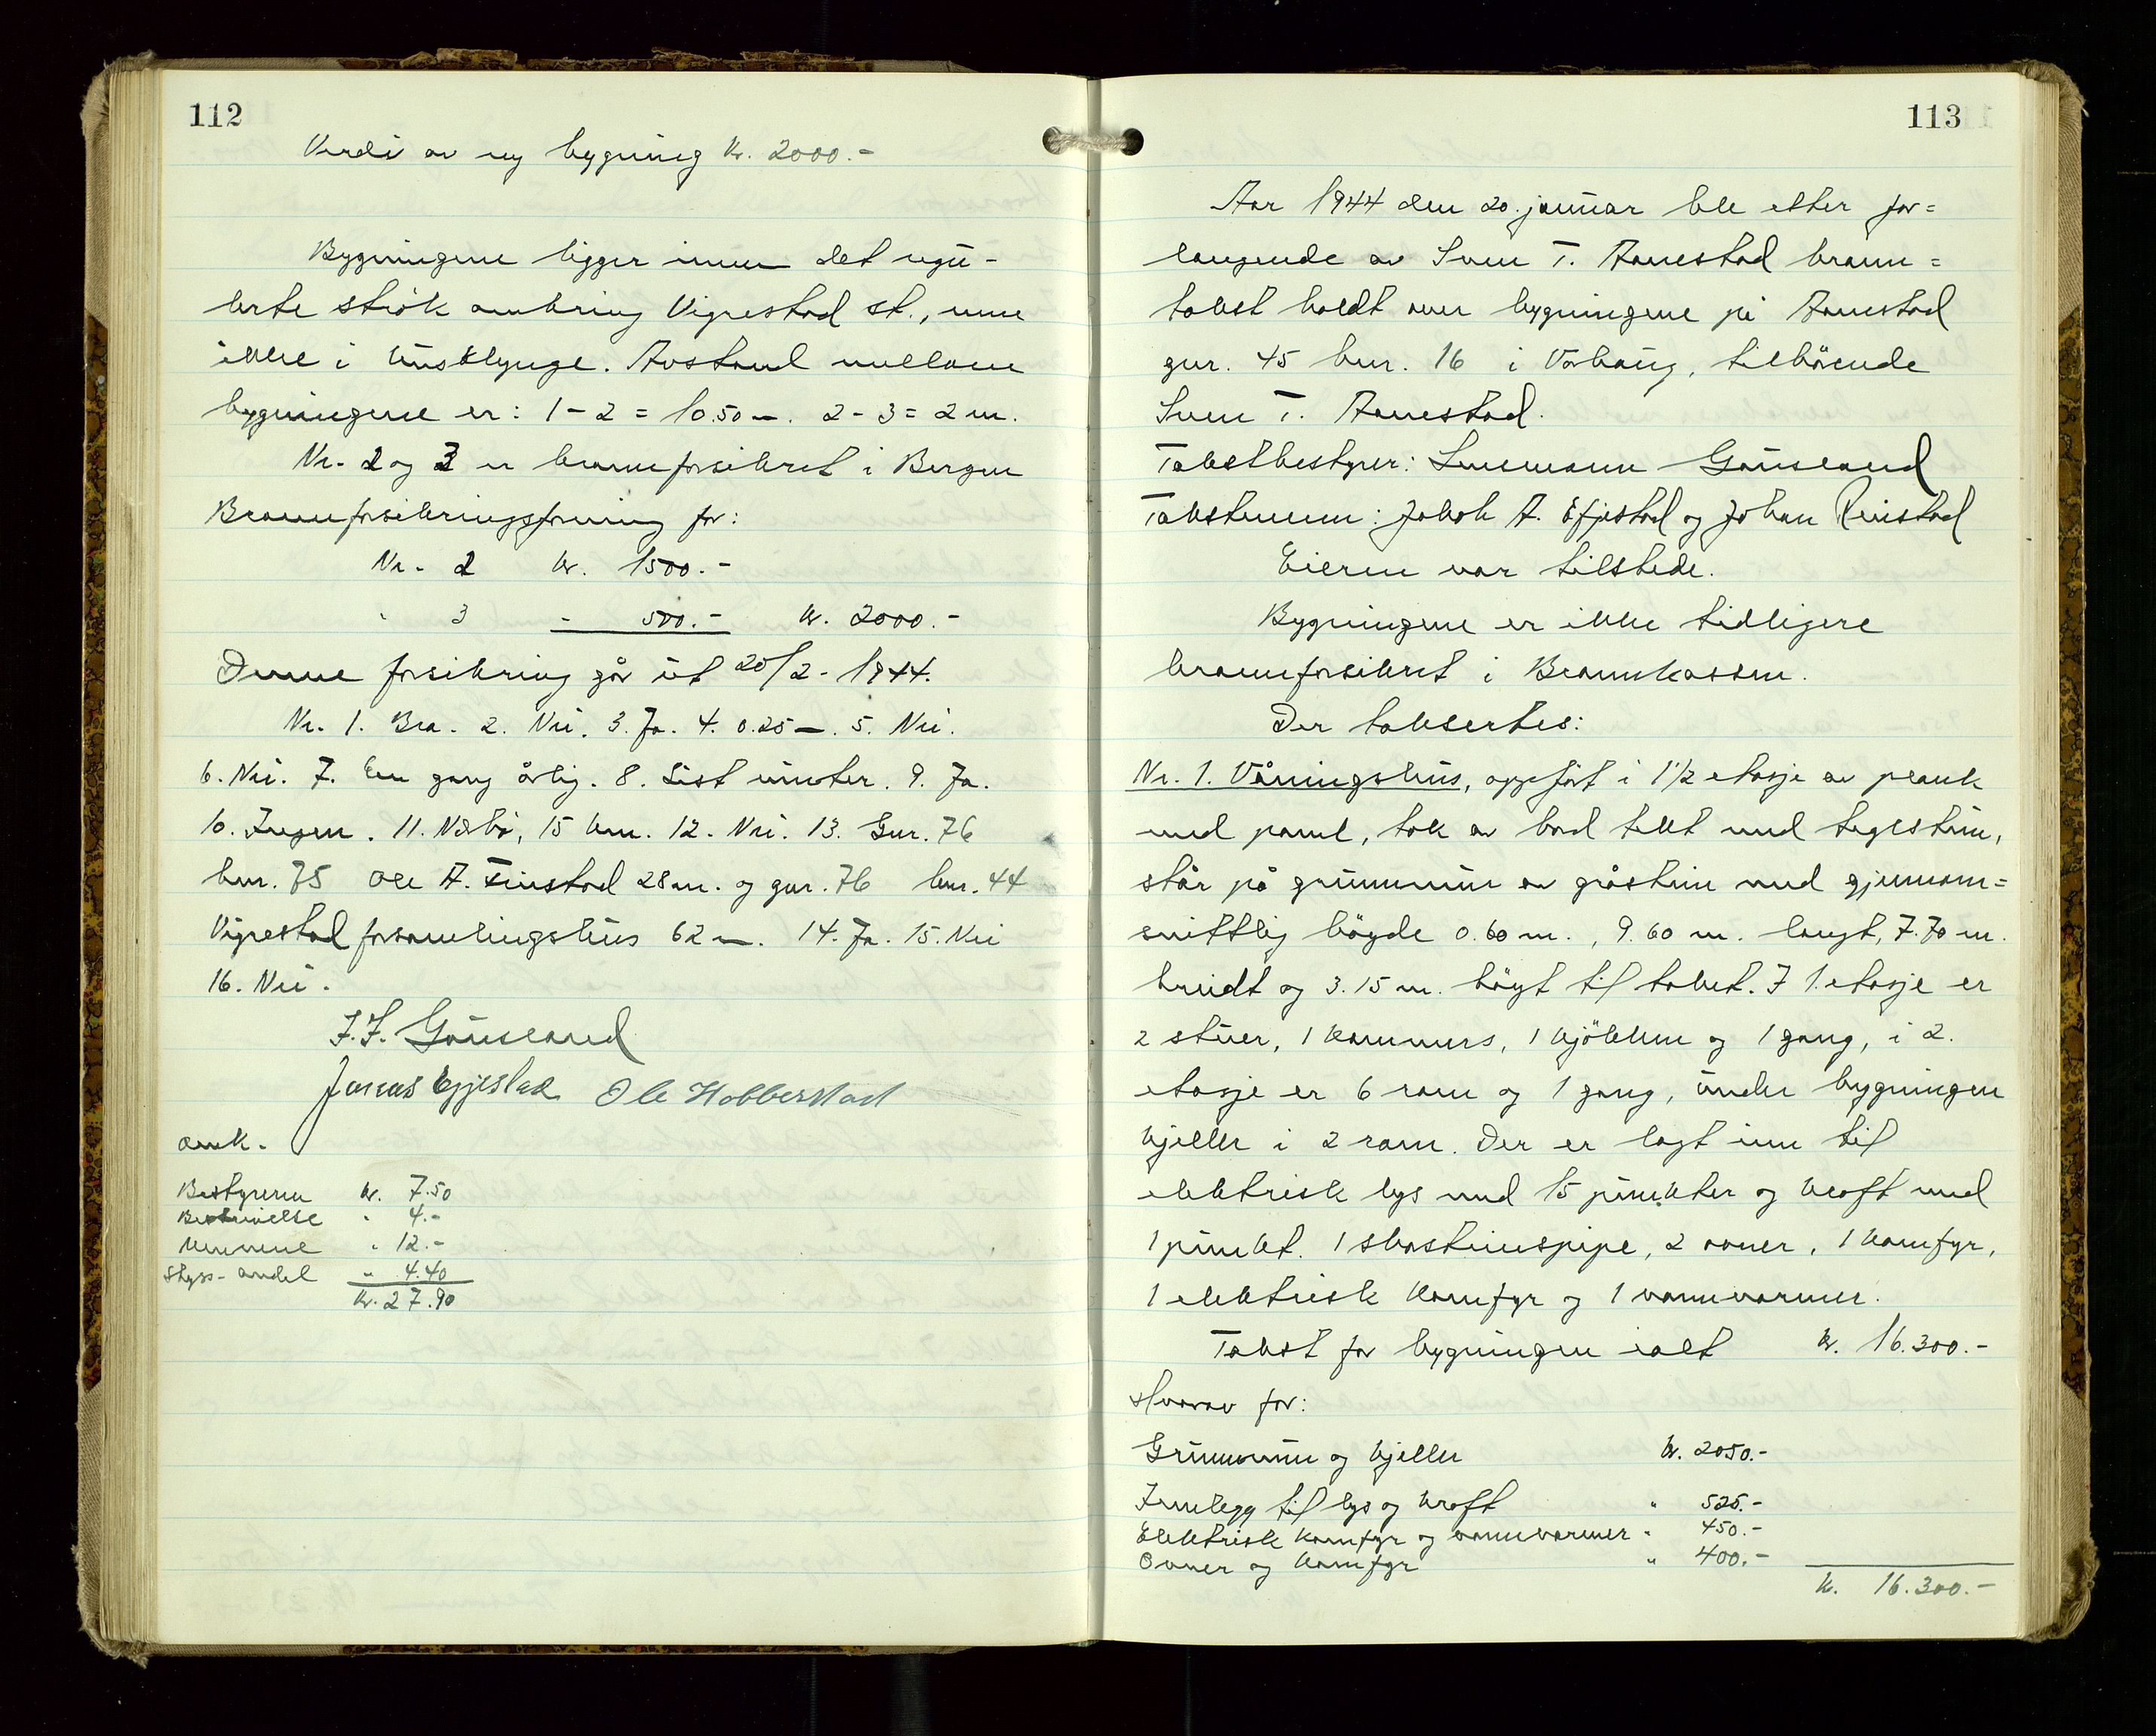 112
Verdi av ny bygning kr. 2000.-
Bygningene ligger innen det regu-
lerte strök omkring Vigrestad st., men
ikke i husklynge. Avstand mellom
bygningene er: 1-2 = 10.50 m. 2-3 = 2 m.
Nr. 2 og 3 er brannforsikret i Bergen
Brannforsikringsforening for:
Nr. 2 kr. 1500.-
" 3 - 500.- kr. 2000.-
Denne forsikring går ut 20/2-1944.
Nr. 1. Bra. 2. Nei. 3. Ja. 4. 0.25 m. 5. Nei.
6. Nei. 7. Een gang årlig. 8. Sist vinter. 9. Ja.
10. Ingen. 11. Nærbö, 15 km. 12. Nei. 13. Gnr. 76
bnr. 75 Ole A. 28 m. og gnr. 76 bnr. 44
Vigrestad forsamlingshus 62 m. 14. Ja. 15. Nei
16. Nei.
J. F. Gausland
Jonas Egjestad Ole Hobberstad
Omk.
Bestyreren kr. 7.50
Beskrivelse " 4.-
Mennene " 12.-
Skyss-andel " 4.40
Kr. 27.90
113
Aar 1944 den 20. januar ble etter for=
langende av Sven T. Aanestad brann=
takst holdt over bygningene på Aanestad
gnr. 45 bnr. 16 i Varhaug, tilhörende
Sven T. Aanestad.
Takstbestyrer: Lensmann Gausland
Takstmenn: Jakob A. Efjestad og Johan Reistad
Eieren var tilstede.
Bygningene er ikke tidligere
brannforsikret i Brannkassen.
Der taksertes:
Nr. 1. Våningshus, oppfört i 1 1/2 etasje av plank
med panel, tak av bord tekt med teglstein,
står på grunnmur av gråstein med gjennom=
snittlig höyde 0.60 m., 9.60 m. langt, 7.70 m.
breidt og 3.15 m. höyt til taket. I 1. etasje er
2 stuer, 1 kammers, 1 kjökken og 1 gang, i 2.
etasje er 6 rom og 1 gang, under bygningen
kjeller i 2 rom. Der er lagt inn til
elektrisk lys med 15 punkter og kraft med
1 punkt. 1 skorsteinspipe, 2 ovner, 1 komfyr,
1 elektrisk komfyr og 1 vannvarmer.
Takst for bygningen ialt kr. 16.300.-
Hvorav for:
Grunnmur og kjeller kr. 2050.-
Innlegg til lys og kraft " 525.-
Elektrisk komfyr og vannvarmer " 450.-
Ovner og komfyr " 400.-
kr. 16.300.-